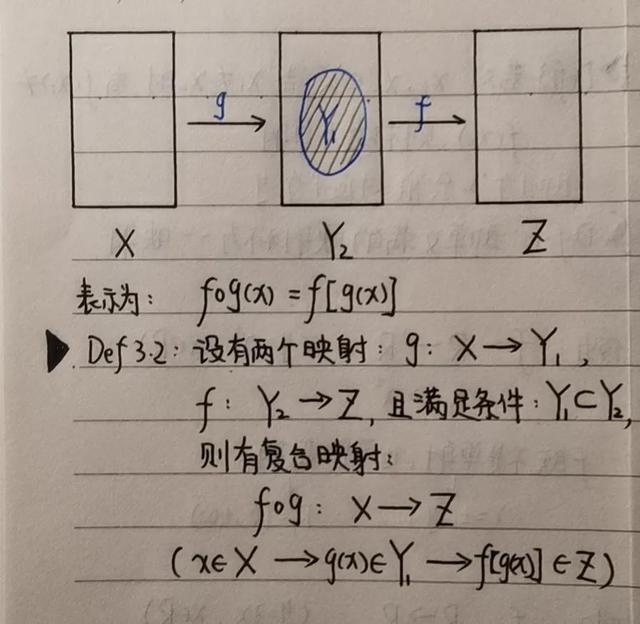 g f
Y₁
X Y₂ Z
表示为: f∘g(x) = f[g(x)]
▶ Def 3.2: 设有两个映射: g: X → Y₁,
f: Y₂ → Z, 且满足条件: Y₁⊂Y₂,
则有复合映射:
f∘g: X → Z
(x∈X → g(x)∈Y₁ → f[g(x)]∈Z)